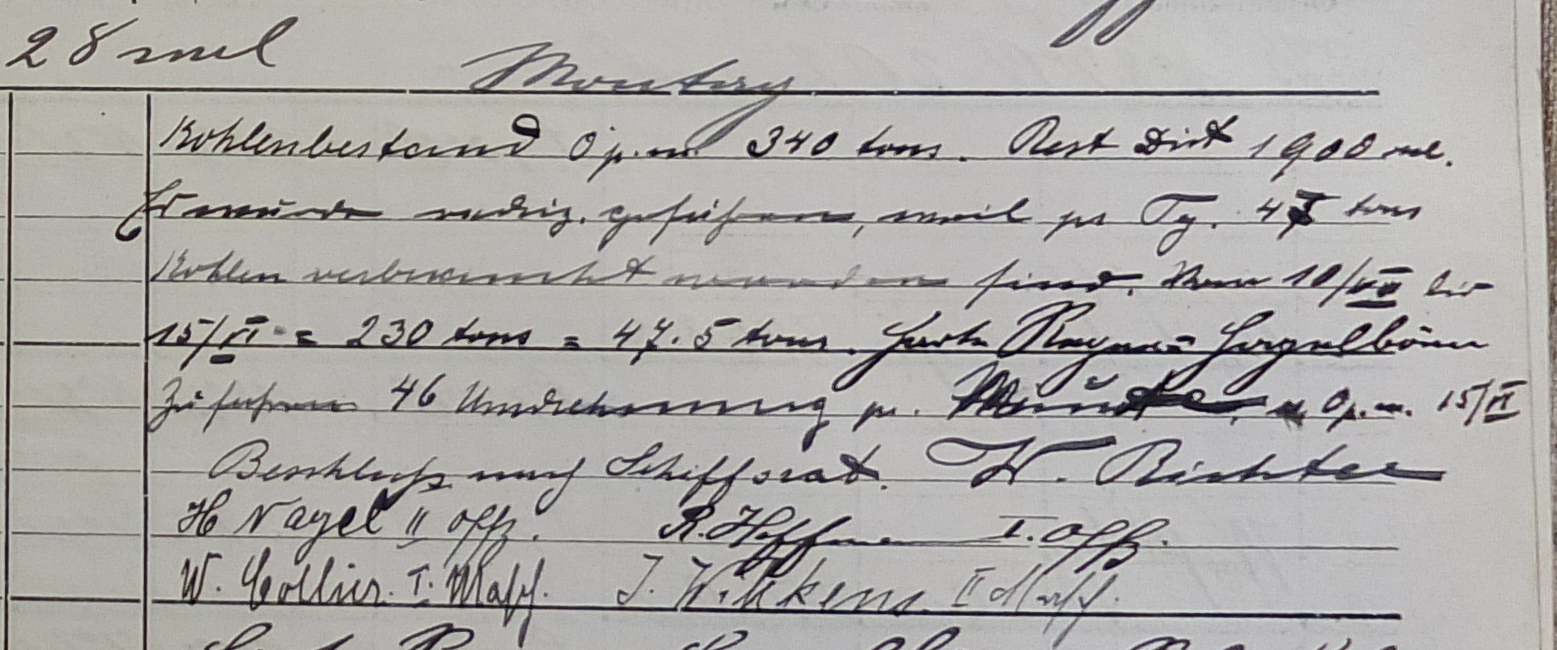 28 sml
Montag
Kohlenbestand 0 p.m. 340 tons. Rest Dist 1900 ml.
Es wurde gefahren, weil pr Tg. 47 tons
Kohlen verbraucht worden sind. Vom 10/ bis
15/VI = 230 tons = 47.5 tons.
Zu fahren 46 Umdrehnung pr. Minute, 0 p.m. 15/VI
Beschluß nach Schiffsrat. W. Richter
H Nagel II Offz. R. Hoffmann I. Offz.
W. Collier. I. Masch. J. Wilkens. II Masch.